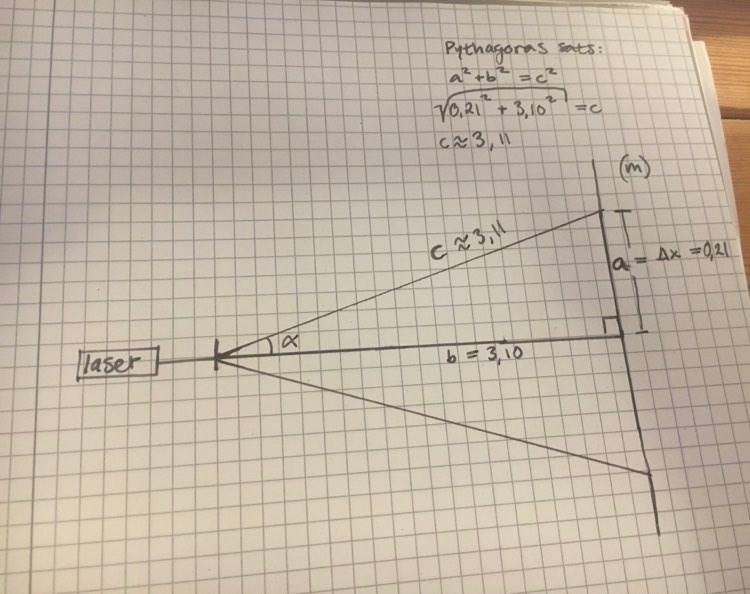 Pythagoras sats:
a² + b² = c²
√0,21² + 3,10² = c
c ≈ 3,11
(m)
c ≈ 3,11
a = Δx = 0,21
α
laser
b = 3,10